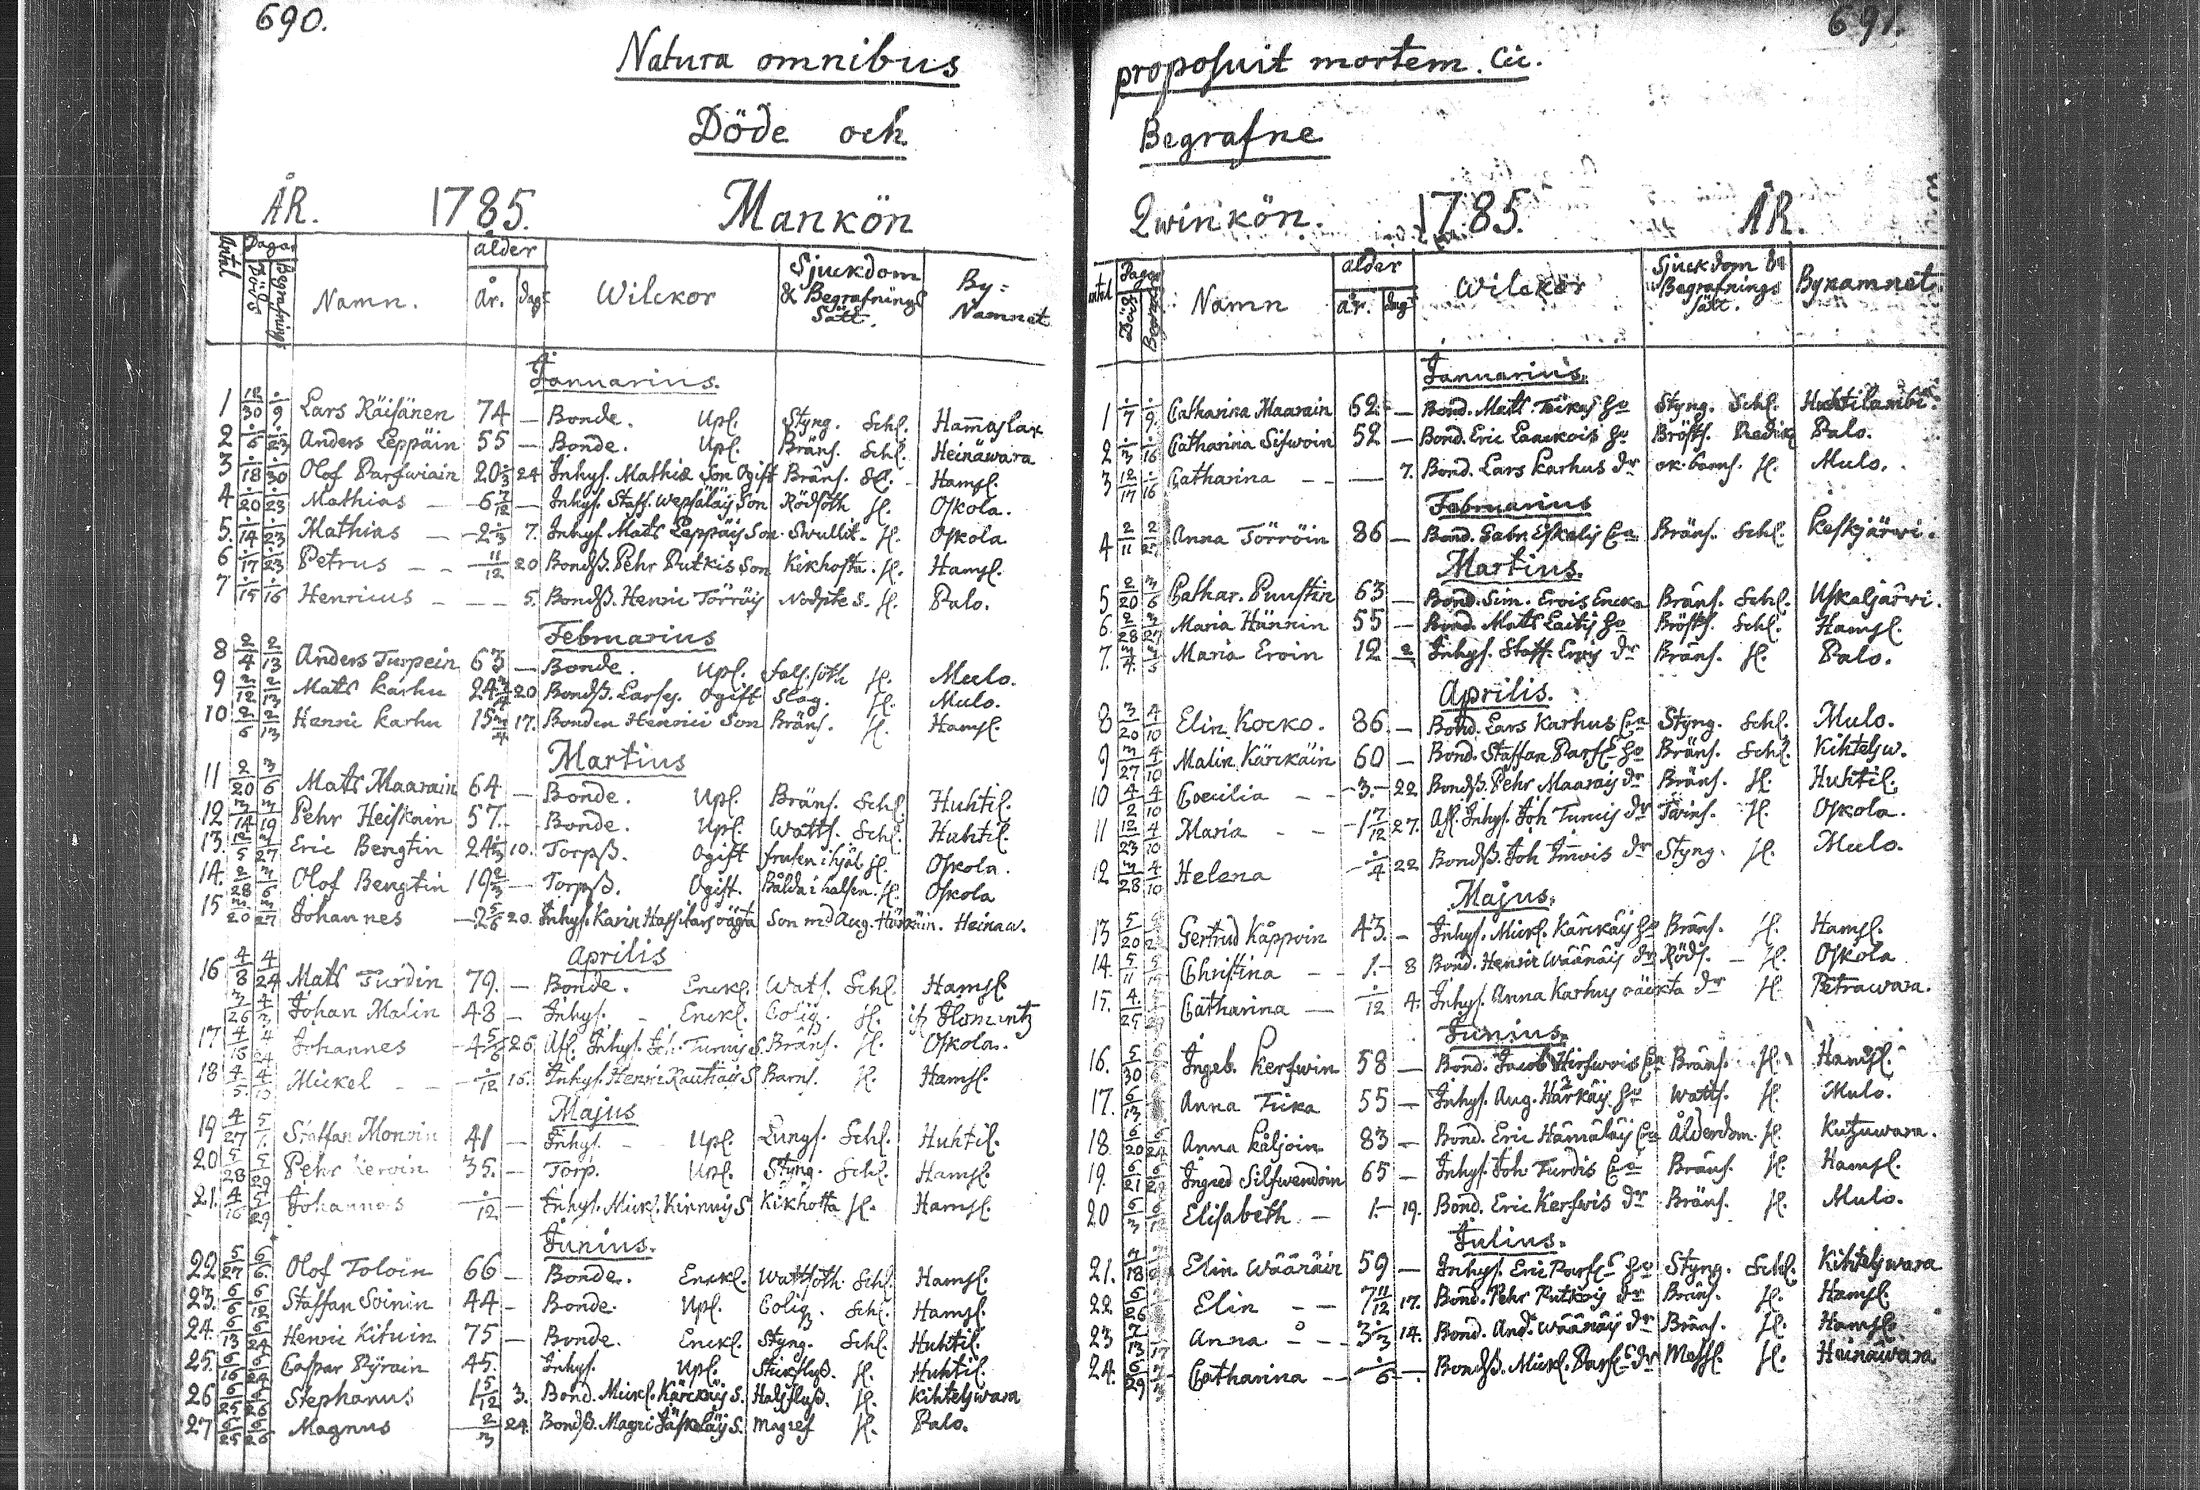 690.
Natura omnibus
Döde och
ÅR. 1785. Mankön
Antal Dagar Namn. ålder Wilckor Sjuckdom & Begrafnings Sätt. By=Namnet
Döds Begrafnings År. dag
Januarius.
1 12/30 ./9 Lars Räisänen 74 — Bonde. Upl. Styng. Schl. Ham̄aslax
2 ./6 ./23 Anders Leppäin 55 — Bonde. Upl. Bräns. Schl. Heinäwara
3 ./18 ./30 Olof Parfwiain 20 ./3 24 Inhys. Mathiæ Son Ogift Bräns. Hamsl.
4 ./20 ./23 Mathias — 6 7/12 — Inhys. Staff. Son Rödsoth sl. Oskola.
5. ./14 ./23 Mathias — 2 ./3 7. Inhys. Mats Leppäis Son sl. Oskola
6 ./17 ./23 Petrus — — 11/12 20 Bondß. Pehr Putkis Son Kikhosta. sl. Hamsl.
7 ./15 ./16 Henricus — — — 5. Bondß. Henric Törröis sl. Palo.
Februarius
8 2/4 2/13 Anders Turpein 63 — Bonde. Upl. sl. Mulo.
9 2/12 2/13 Mats Karhu 24 20 Bondß. Ogift Slag. sl. Mulo.
10 2/6 2/13 Henric Karhu 15 17. Bonden Henrici Son Bräns. sl. Hamsl.
Martius
11 2/20 3/6 Mats Maarain 64 — Bonde. Upl. Bräns. Schl. Huhtil.
12 3/14 3/19 Pehr Heiskain 57. — Bonde. Upl. Watts. Schl. Huhtil.
13. 5 3/27 Eric Bengtin 24 ./3 10. Torpß. Ogift frusen ihjäl sl. Oskola.
14. 2/28 3/6 Olof Bengtin 19 2/3 — Torpß. Ogift. Bålda i halsen. sl. Oskola
15 3/20 3/27 Johannes — 2 5/6 20. Inhys. Karin oägta Son md Aug. Härkäin. Heinaw.
Aprilis
16 4/8 4/24 Mats Turdin 79. — Bonde. Enckl. Wats. Schl. Hamsl.
3/26 4/3 Johan Malin 48 — Inhys. — Enckl. Coliq. sl. Ilomantz
17 4/16 4/24 Johannes — 4 5/6 26 Afl. Inhys. Joh. Turuis S. Bräns. sl. Oskola.
18 4/5 Mickel — — ./12 16. Inhys. Henric Rautiais S. Barns. sl. Hamsl.
Majus
19 4/27 5/1. Staffan 41 — Inhys. — — Upl. Lungs. Schl. Huhtil.
20 5/28 5/29 Pehr 35. — Torp. Upl. Styng. Schl. Hamsl.
21. 4/16 5/29 Johannes ./12 — Inhys. Mickl. Kinnuis S Kikhosta sl. Hamsl.
Junius.
22 5/27 6/6. Olof Toloin 66 — Bonde. Enckl. Wattsoth Schl. Hamsl.
23. 6/6 6/12 Staffan Soinin 44 — Bonde. Upl. Coliq. Schl. Hamsl.
24. 6/13 6/24 Henric Kituin 75 — Bonde. Enckl. Styng. Schl. Huhtil.
25. 6/16 6/24 Caspar Pyrain 45. Inhys. Upl. Stickfluß. sl. Huhtil.
26 6/25 6/26 Stephanus 1 5/12 3. Bond. Mickl. Kärckäis S. Halsfluß. sl. Kihtelyswara
27 6/25 6/26 Magnus — 2/3 24. Bondß. Magni Jäskeläis S. Magref sl. Palo.
691.
proposuit mortem. Cic.
Begrafne
Qwinkön. 1785. ÅR.
Antal Dagar Namn ålder Wilckor Sjuckdom & Begrafnings sätt. Bynamnet
Döds år. dag
Januarius.
1 ./7 ./9. Catharina Maarain 62. — Bond. Mats hu Styng. Schl. Huhtilambi.
2 ./3 ./16 Catharina Sifwoin 52 — Bond. Eric Laackois hu Bröst. Schl. Palo.
3 12/17 ./16 Catharina — — — 7. Bond. Lars Karhus dr sl. Mulo.
Februarius
4 2/11 2/27 Anna Törröin 86 — Bond. Gabr. Eskelis Bräns. Schl. Keskjärwi.
Martius.
5 2/20 3/6 Cathar. Puustin 63 — Bond. Sim. Erois Encka Bräns. Schl. Uskaljärwi.
6. 2/28 3/27 Maria Hännin 55 — Bond. Mats hu Bröst. Schl. Hamsl.
7. 3/4 Maria Eroin 12 2 Inhys. Staff. Erois dr Bräns. sl. Palo.
Aprilis.
8 3/20 4/10 Elin Kocko. 86 — Bond. Lars Karhus Styng. Schl. Mulo.
9 3/27 4/10 Malin Kärckäin 60 — Bond. Staffan hu Bräns. Schl. Kihtelysw.
10 4/2 4/10 Coecilia — — 3. — 22 Bondß. Pehr Maarais dr Bräns. sl. Huhtil.
11 12/23 4/10 Maria — — 1 7/12 27. Afl. Inhys. Joh Turuis dr Tärins. sl. Oskola.
12 3/28 4/10 Helena — ./4 22 Bondß. Joh dr Styng. sl. Mulo.
Majus.
13 5/20 Gertrud Kåppoin 43. — Inhys. Mickl. Kärckäis hu Bräns. sl. Hamsl.
14. 5/11 Christina — — 1. — 8 Bond. Henric Wäänäis dr Röds. — sl. Oskola
15. 4./25 Catharina — ./12 4. Inhys. Anna Karhus oäckta dr sl. Petrawara.
Junius.
16. 5/30 Ingeb. Kerfwin 58 — Bond. Jacob Hirfwois Bräns. sl. Hamsl.
17. 6/13 Anna Ticka 55 — Inhys. Aug. Härkäis hu Watts. sl. Mulo.
18 6/20 6/24 Anna Kåljoin 83 — Bond. Eric Hämäläis Ålderdom. sl. Kutzuwara.
19. 6/21 6/29 Ingred Silfwendoin 65 — Inhys. Joh Turdis Bräns. sl. Hamsl.
20 6/3 6/12 Elisabeth — 1. — 19. Bond. Eric Kerfwis dr Bräns. sl. Mulo.
Julius.
21. 7/18 Elin Wäänäin 59 — Inhys. Eric hu Styng. Schl. Kihtelyswara
22. 6/26 Elin — — 7 11/12 17. Bond. Pehr Putkois dr Bräns. sl. Hamsl.
23 7/13 7/17 Anna — — 3 ./3 14. Bond. And. Wäänäis dr Bräns. sl. Hamsl.
24. 6/29 7/3 Catharina — — ./6 — Bondß. Mickl. dr Messl. sl. Heinäwara